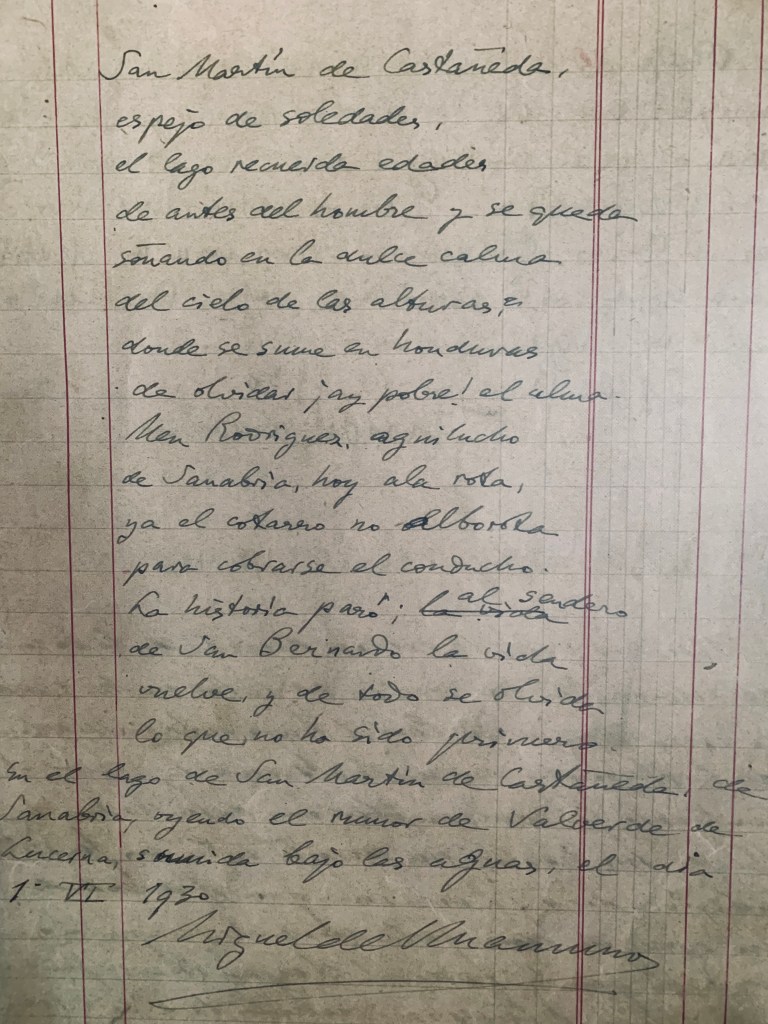 San Martín de Castañeda,
espejo de soledades,
el lago recuerda edades
de antes del hombre y se queda
soñando en la dulce calma
del cielo de las alturas,
donde se sume en honduras
de olvidar ¡ay pobre! el alma.
Men Rodríguez, aguilucho
de Sanabria, hoy ala rota,
ya el cotarro no alborota
para cobrarse el conducho.
La historia paró; la vida al sendero
de San Bernardo la vida
vuelve, y de todo se olvida
lo que no ha sido primero.
En el lago de San Martín de Castañeda, de
Sanabria, oyendo el rumor de Valverde de
Lucerna, sumida bajo las aguas, el dia
1º VI 1930
Miguel de Unamuno